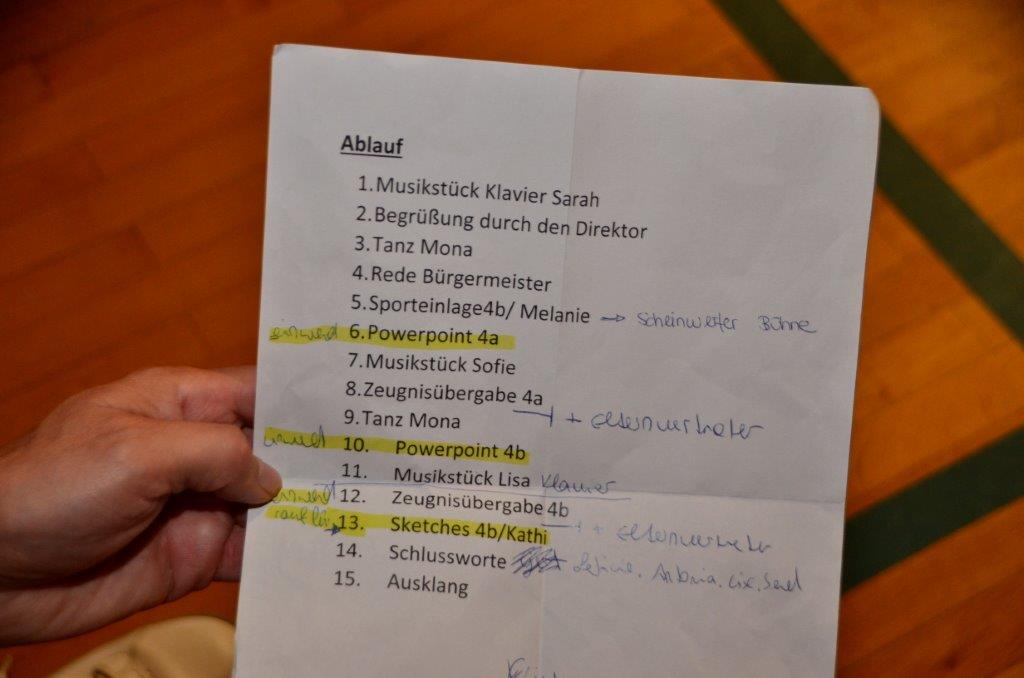 Ablauf
1. Musikstück Klavier Sarah
2. Begrüßung durch den Direktor
3. Tanz Mona
4. Rede Bürgermeister
5. Sporteinlage4b/ Melanie → Scheinwerfer Bühne
6. Powerpoint 4a
7. Musikstück Sofie
8. Zeugnisübergabe 4a + Elternvertreter
9. Tanz Mona
10. Powerpoint 4b
11. Musikstück Lisa Klavier
12. Zeugnisübergabe 4b + Elternvertreter
13. Sketches 4b/Kathi
14. Schlussworte
15. Ausklang